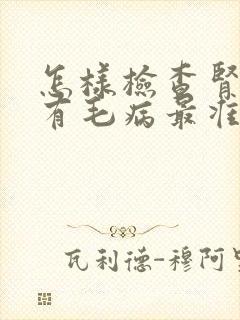 怎樣檢查腎
有毛病最准
瓦利德-穆阿